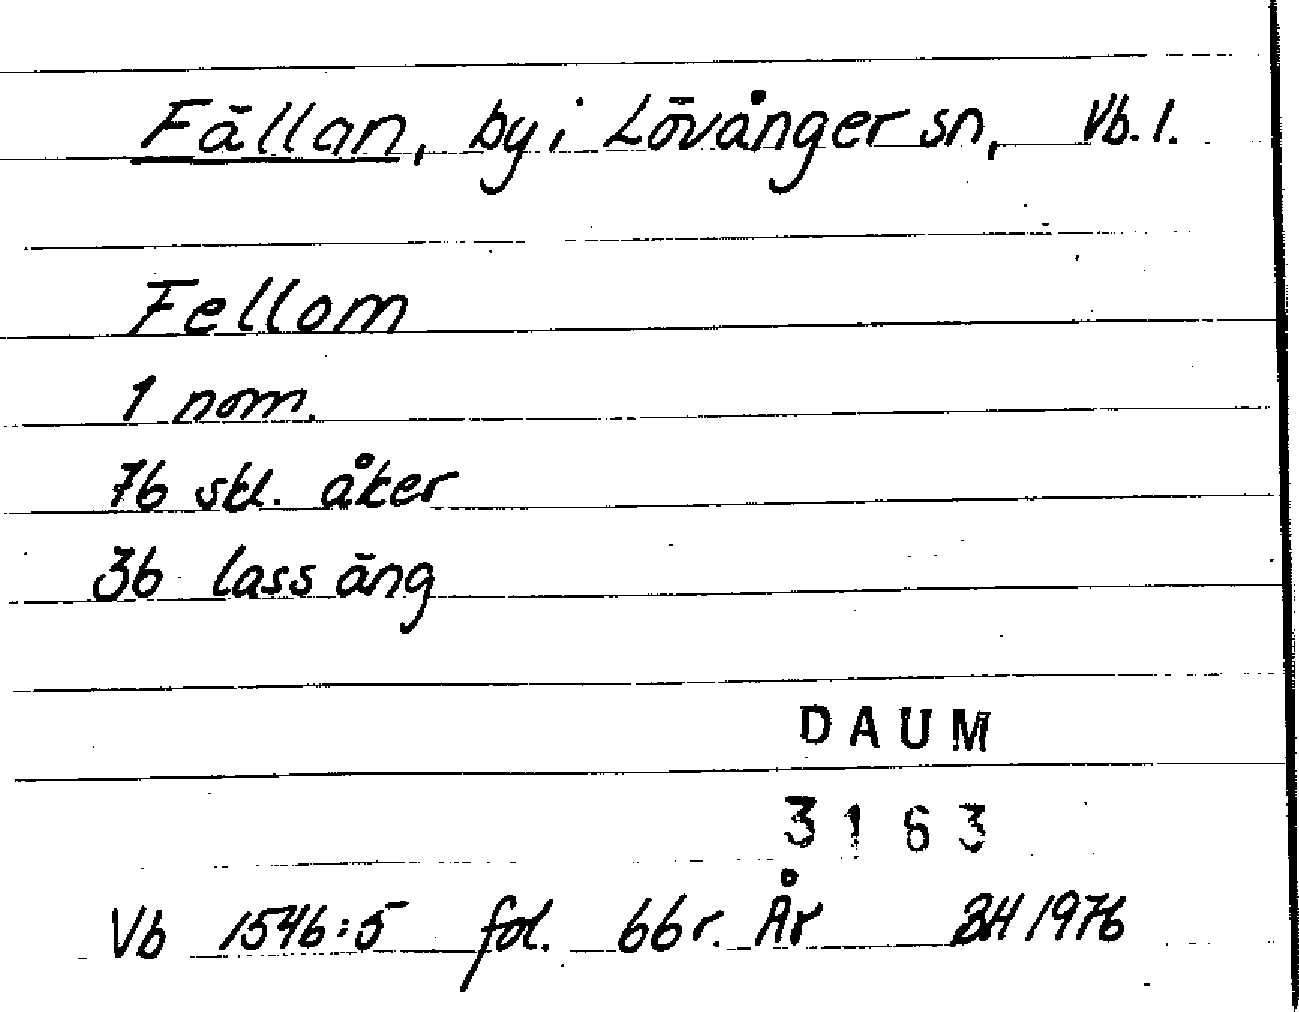 Fällan, by i Lövånger sn, Vb. l.
Fellom
1 nom.
76 skl. åker
36 lass äng
DAUM
3163
Vb 1546:5 fol. 66r. År BH 1976